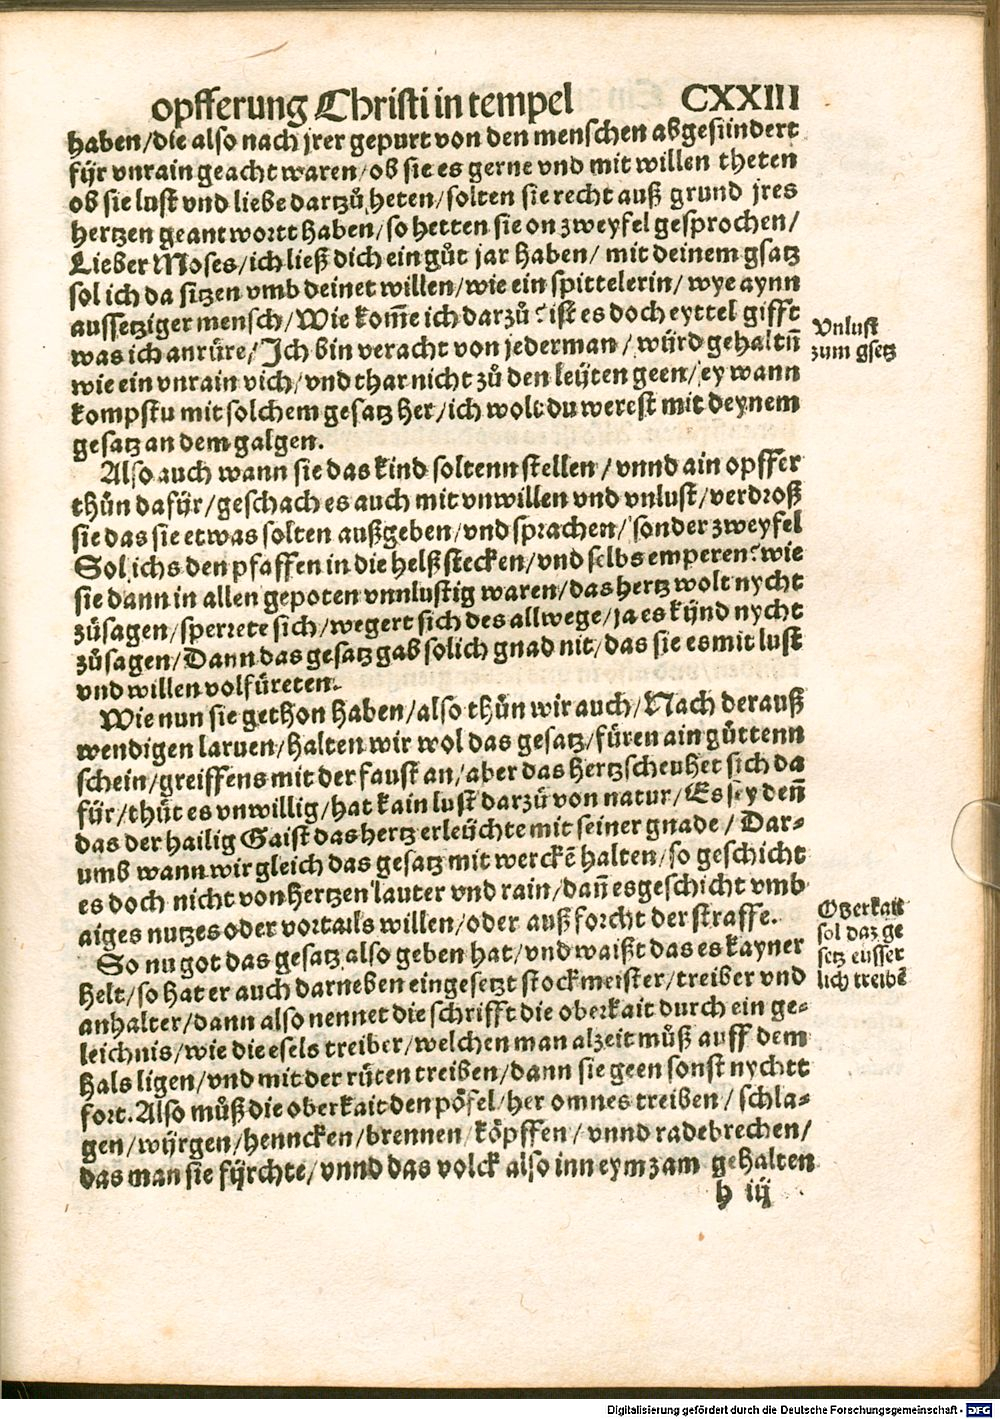 opfferung Christi in tempel CXXIII
haben/die also nach jrer gepurt von den menschen abgesündert
für vnrain geacht waren/ob sie es gerne vnd mit willen theten
ob sie lust vnd liebe dartzů heten/solten sie recht auß grund jres
hertzen geantwortt haben/so hetten sie on zweyfel gesprochen/
Lieber Moses/ich ließ dich ein gůt jar haben/ mit deinem gsatz
sol ich da sitzen vmb deinet willen/wie ein spittelerin/ wye aynn
aussetziger mensch/Wie kom̃e ich darzů? ist es doch eyttel gifft
was ich anrüre/ Ich bin veracht von jederman/ würd gehaltñ
wie ein vnrain vich/vnd thar nicht zů den leüten geen/ey wann
kompstu mit solchem gesatz her/ich wolt du werest mit deynem
gesatz an dem galgen.
Also auch wann sie das kind soltenn stellen/vnnd ain opffer
thůn dafür/geschach es auch mit vnwillen vnd vnlust/verdroß
sie das sie etwas solten außgeben/vnd sprachen/sonder zweyfel
Sol ichs den pfaffen in die helß stecken/vnd selbs emperen? wie
sie dann in allen gepoten vnnlustig waren/das hertz wolt nycht
zůsagen/sperrete sich/wegert sich des allwege/ja es künd nycht
zůsagen/Dann das gesatz gab solich gnad nit/das sie es mit lust
vnd willen volfüreten.
Wie nun sie gethon haben/also thůn wir auch/Nach der auß
wendigen laruen/halten wir wol das gesatz/füren ain gůttenn
schein/greiffens mit der faust an/aber das hertz scheuhet sich da
für/thůt es vnwillig/hat kain lust darzů von natur/Es sey deñ
das der hailig Gaist das hertz erleüchte mit seiner gnade/ Dar-
umb wann wir gleich das gesatz mit werckẽ halten/so geschicht
es doch nicht von hertzen lauter vnd rain/dañ es geschicht vmb
aiges nutzes oder vortails willen/oder auß forcht der straffe.
So nu got das gesatz also geben hat/vnd waißt das es kayner
helt/so hat er auch darneben eingesetzt stockmeister/treiber vnd
anhalter/dann also nennet die schrifft die oberkait durch ein ge-
leichnis/wie die esels treiber/welchen man alzeit můß auff dem
hals ligen/vnd mit der růten treiben/dann sie geen sonst nychtt
fort. Also můß die oberkait den pöfel/her omnes treiben/ schla-
gen/würgen/henncken/brennen/köpffen/vnnd radebrechen/
das man sie fürchte/vnnd das volck also inn eym zam gehalten
h iij
Vnlust
zum gsetz
Oberkait
sol daz ge
setz eüsser
lich treibẽ
Digitalisierung gefördert durch die Deutsche Forschungsgemeinschaft - DFG